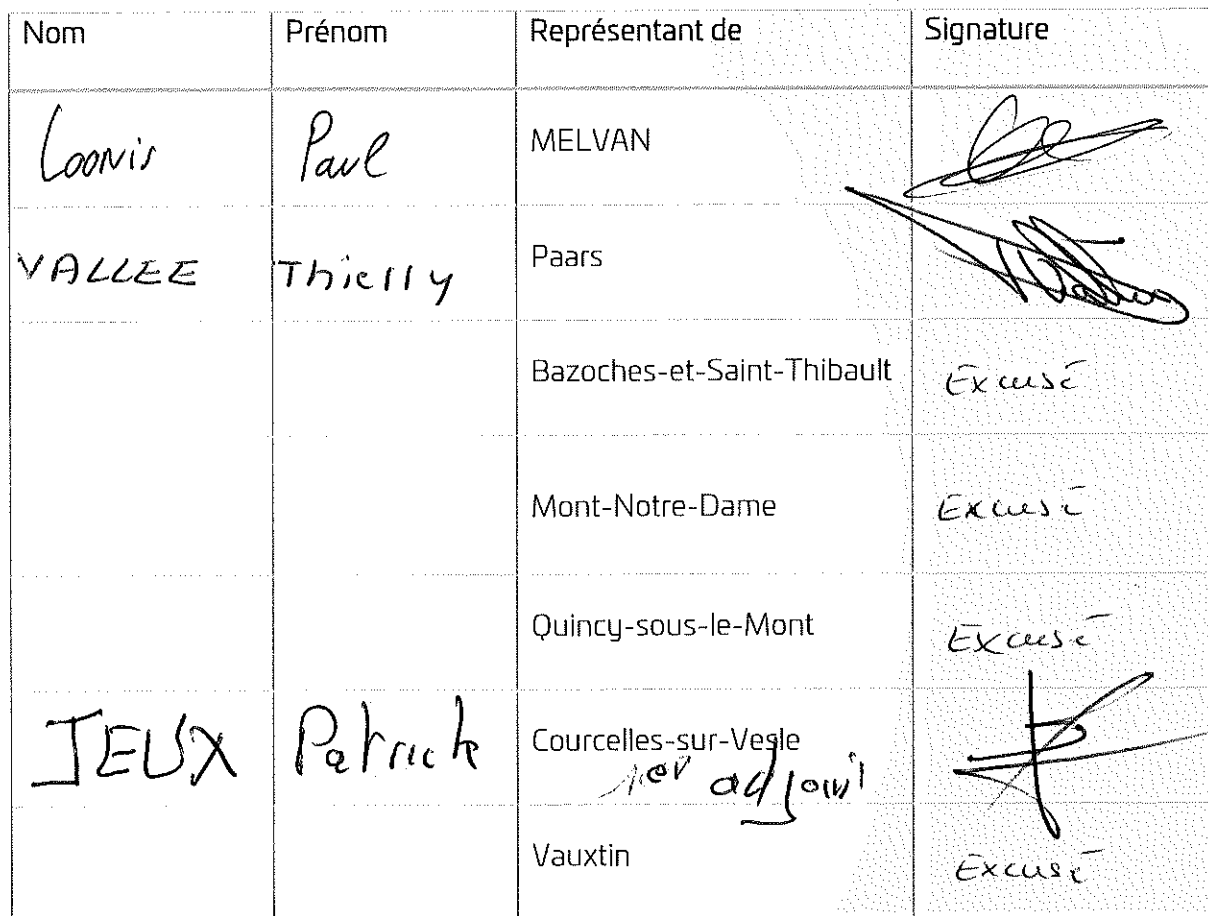 Nom Prénom Représentant de Signature
Loonis Paul MELVAN
VALLEE Thierry Paars
Bazoches-et-Saint-Thibault Excusé
Mont-Notre-Dame Excusé
Quincy-sous-le-Mont Excusé
JEUX Patrick Courcelles-sur-Vesle
1er adjoint
Vauxtin Excusé